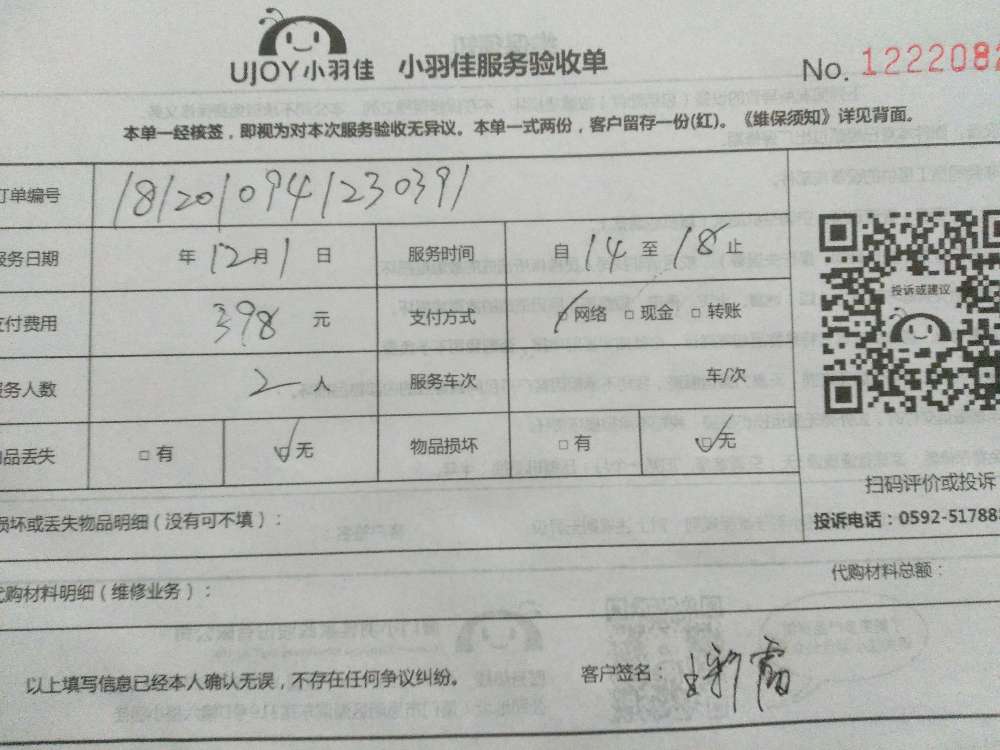 UJOY小羽佳 小羽佳服务验收单 No. 122208
本单一经核签,即视为对本次服务验收无异议。本单一式两份,客户留存一份(红)。《维保须知》详见背面。
订单编号 1812010941230391
服务日期 年12月1日 服务时间 自14至18止
支付费用 398元 支付方式 □网络 □现金 □转账
投诉或建议
服务人数 2人 服务车次 车/次
物品丢失 □有 □无 物品损坏 □有 □无
扫码评价或投诉
损坏或丢失物品明细(没有可不填):
投诉电话:0592-51788
代购材料明细(维修业务): 代购材料总额:
以上填写信息已经本人确认无误,不存在任何争议纠纷。 客户签名: